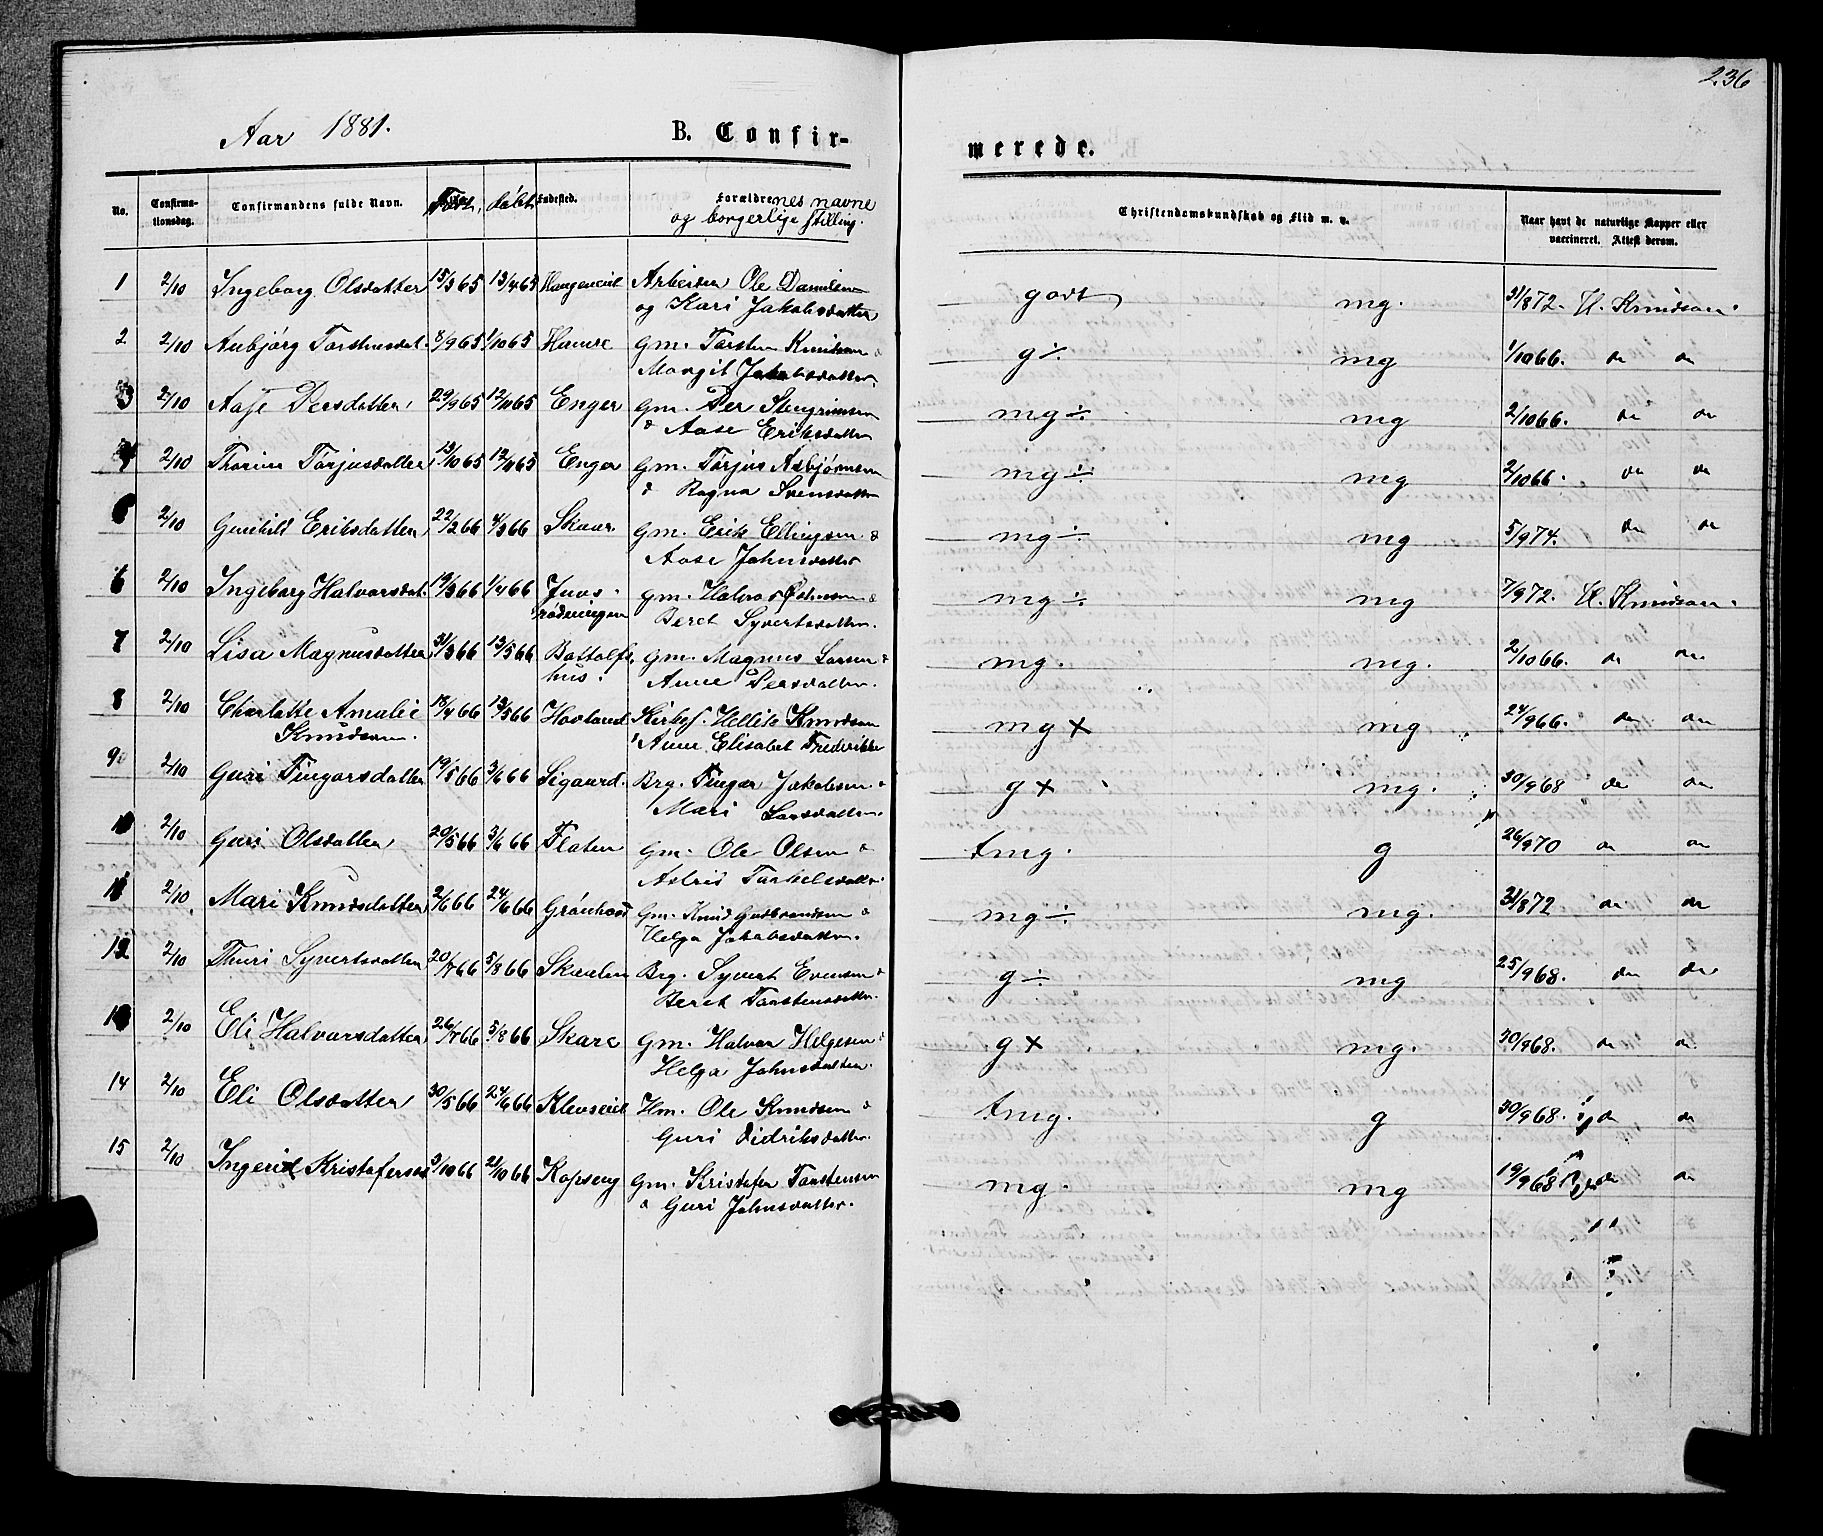 236
Aar 1881. B. Confir- merede.
No. Confirma- tionsdag. Confirmandens fulde Navn. Født, døbt Fødested. Forældrenes navne og borgerlige stilling. Christendomskundskab og Flid m. v. Naar havt de naturlige Kopper eller vaccineret. Attest derom.
1 2/10 Ingeborg Olsdatter 15/3 65 13/4 65 Haugeneiet Arbeider Ole Danielsen godt mg. 31/8 72. H. Knudsen.
og Kari Jakobsdatter
2 2/10 Anbjørg Torstensdat. 8/9 65 1/10 65 Haure gm. Torsten Knudsen & g÷ mg 1/10 66. do do
Margit Jakobsdatter
3 2/10 Aase Persdatter 29/9 65 12/11 65 Enger gm. Per Stengrimsen mg÷ mg 2/10 66. do do
& Aase Eriksdatter
4 2/10 Thorine Torjusdatter 13/10 65 12/11 65 Enger gm. Torjus Asbjørnsen mg÷ mg 2/10 66. do do
& Ragna Svensdatter
2/10 Gunhild Eriksdatter 22/2 66 4/3 66 Skaar gm. Erik Ellingsen & mg÷ mg 5/9 74. do do
Aase Johnsdatter
6 2/10 Ingeborg Halvorsdat. 19/3 66 1/4 66 Juvs- gm. Halvor Østensen & mg÷ mg 7/9 72. H. Knudsen.
rødningen Beret Syvertsdatter.
7 2/10 Lisa Magnusdatter 31/3 66 13/5 66 Battolfs- gm. Magnus Larsen & mg. mg. 2/10 66. do do
hus. Anne Persdatter.
8 2/10 Charlotte Amalie 18/4 66 13/5 66 Havland Kirkes. Hellik Knudsen mg× mg 24/9 66. do do
Knudsen. & Anne Elisabet Frederikke
9 2/10 Guri Fingarsdatter 19/5 66 3/6 66 Sigaard. Brg. Fingar Jakobsen & g× mg. 30/9 68 do do
Mari Larsdatter.
10 2/10 Guri Olsdatter 20/5 66 3/6 66 Flaten gm. Ole Olsen & tmg. g 26/9 70 do do
Astris Torkelsdatter.
11 2/10 Mari Knudsdatter 2/6 66 24/6 66 Grønhovd gm. Knud Gudbrandsen & mg÷ mg. 31/8 72 do do
Helga Jakobsdatter.
12 2/10 Thuri Syvertsdatter 20/7 66 5/8 66 Skaulen Brg. Syvert Evensen & g÷ mg 25/9 68. do do
Beret Torstensdatter.
2/10 Eli Halvorsdatter 26/7 66 5/8 66 Skare gm. Halvor Helgesen & g× mg. 30/9 68. do do
Helga Johnsdatter.
14 2/10 Eli Olsdatter 30/5 66 24/6 66 Klevseiet Hm. Ole Knudsen & tmg. g 30/9 68. do do
Guri Didriksdatter.
15 2/10 Ingerid Kristofersd 3/10 66 21/10 66 Kopseng gm. Kristofer Torstensen mg. mg 19/9 68 do do
& Guri Johnsdatter.